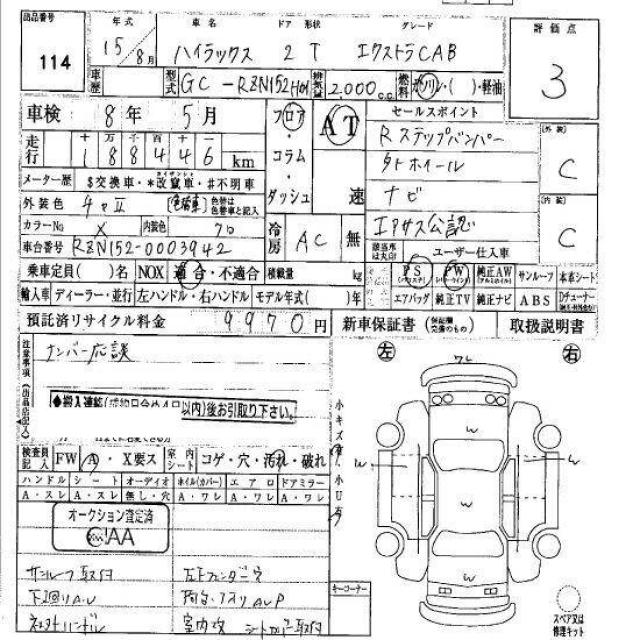 出品番号 年式 車名 ドア 形状 グレード 評価点
114 15年 8月 ハイラックス 2 T エクストラCAB 3
車歴 型式 GC-RZN152H 排気量 2000cc 燃料 ガソリン・( )・軽油
車検 8年 5月 フロア・コラム・ダッシュ AT 速 セールスポイント
走行 十 万 千 百 十 一
188446 km
Rステップバンパー
外装 C
メーター歴 $交換車・*改竄車・#不明車
タトホイール
ナビ
内装 C
外装色 色替車 色替は色替車と記入
エアサス公認
カラーNo X 内装色
冷房 AC 無
該当車は丸印 ユーザー仕入車
車台番号 RZN152-0003942
乗車定員( )名 NOX 適合・不適合 積載量 kg
PS PW 純正AW サンルーフ 本革シート
輸入車 ディーラー・並行 左ハンドル・右ハンドル モデル年式( )年
エアバッグ 純正TV 純正ナビ ABS Dチューナー
預託済リサイクル料金 9970円 新車保証書 取扱説明書
注意事項(出品店記入)
ナンバー応談
左 右
以内)後お引取り下さい。
小キズ有 小U有
検査員記入 FW A・X要ス 室内シート コゲ・穴・汚れ・破れ
ハンドル シート オーディオ ホイル(カバー) エアロ ドアミラー
A・スレ A・スレ 無し・穴 A・ワレ A・ワレ A・ワレ
オークション査定済
AA
サンルーフ取付
下廻りA.U
室内改 シートカバー取付
キーコーナー
スペア又は
修理キット
W
W
W
W
W
W